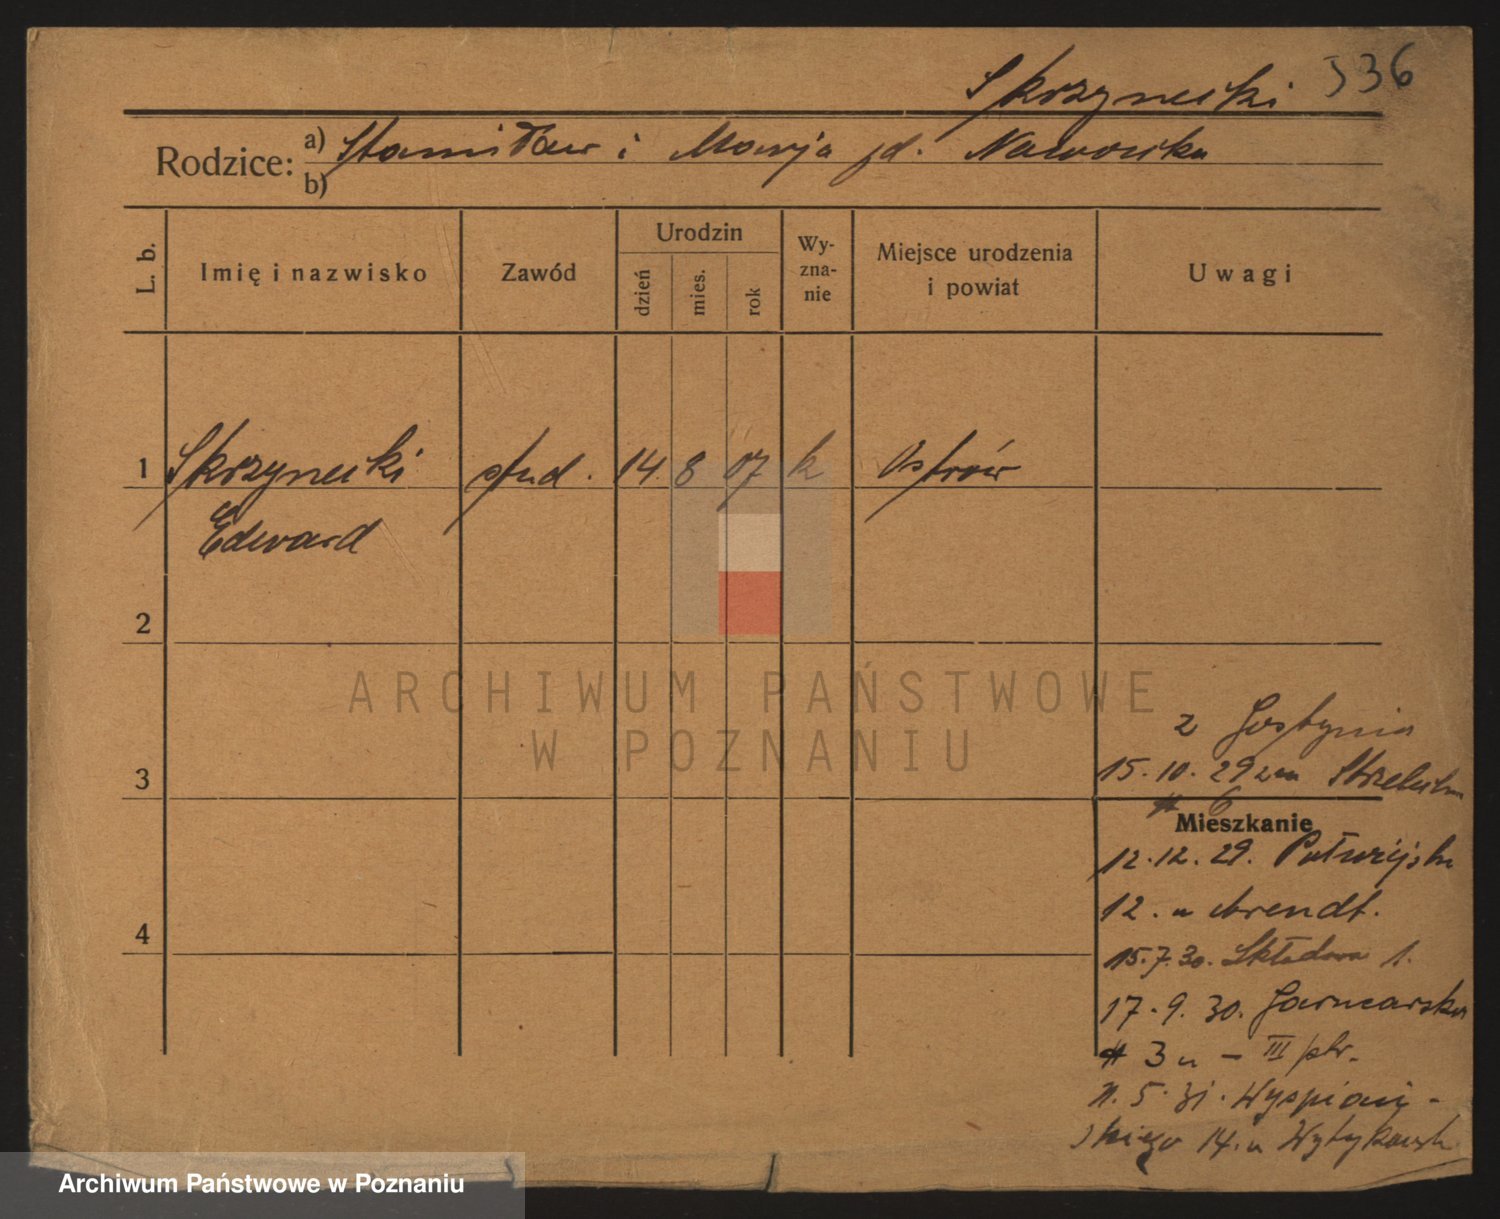 Skrzynecki 536
Rodzice: a) Stanisław i Marja zd. Nawrocka
b)
L. b. Imię i nazwisko Zawód Urodzin dzień mies. rok Wy-zna-nie Miejsce urodzenia i powiat Uwagi
1 Skrzynecki stud. 14. 8 07 k Ostrów
Edward
2
z Gostynia
3 15. 10. 29
6
Mieszkanie
12. 12. 29. Półwiejska
12. u Arendt.
4
15. 7. 30. Składowa 1.
17. 9. 30. Garncarska
3 u — III ptr.
11. 5. 31. Wyspiań-
skiego 14. u
ARCHIWUM PAŃSTWOWE
W POZNANIU
Archiwum Państwowe w Poznaniu